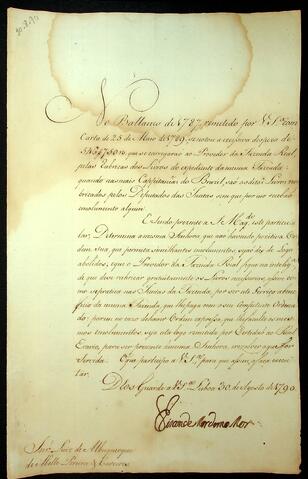 No Ballanço de 1787, remetido por V. S.ª com
Carta de 25 de Maio de 1789, se notou a excessiva despeza de
que se carregarão ao Provedor da Fazenda Real,
pelas rubricas dos Livros do expediente da mesma Fazenda
quando nas mais Capitanias do Brazil são os ditos Livros ru-
bricados pelos Deputados das Juntas sem que por isso recebão
emolumento algum.
E sendo prezente a S. Mag.de este particu-
lar, Determina a mesma Senhora, que não havendo pozitiva Or-
dem Sua, que permita similhantes emolumentos, sejão desde Logo
abolidos, e que o Provedor da Fazenda Real, fique na inteligencia
de que deve rubricar gratuitamente os Livros
se pratica nas Juntas da Fazenda, por ser este serviço
da mesma Fazenda, que lhe paga com seu competente Ordena-
do: porem no cazo de haver Ordem expressa, que lhe faculte os mes-
mos emolumentos, seja esta logo remetida por Certidão ao Real
Erario, para ser prezente á mesma Senhora, e rezolver o que for
Servida. O que participo a V. S.ª para que assim o faça execu-
tar.
Deos Guarde a V. S.ª Lisboa 30 de Agosto de 1790.
Visconde Mordomo Mor
Snr. Luiz de Albuquerque
de Mello Pereira e Caceres